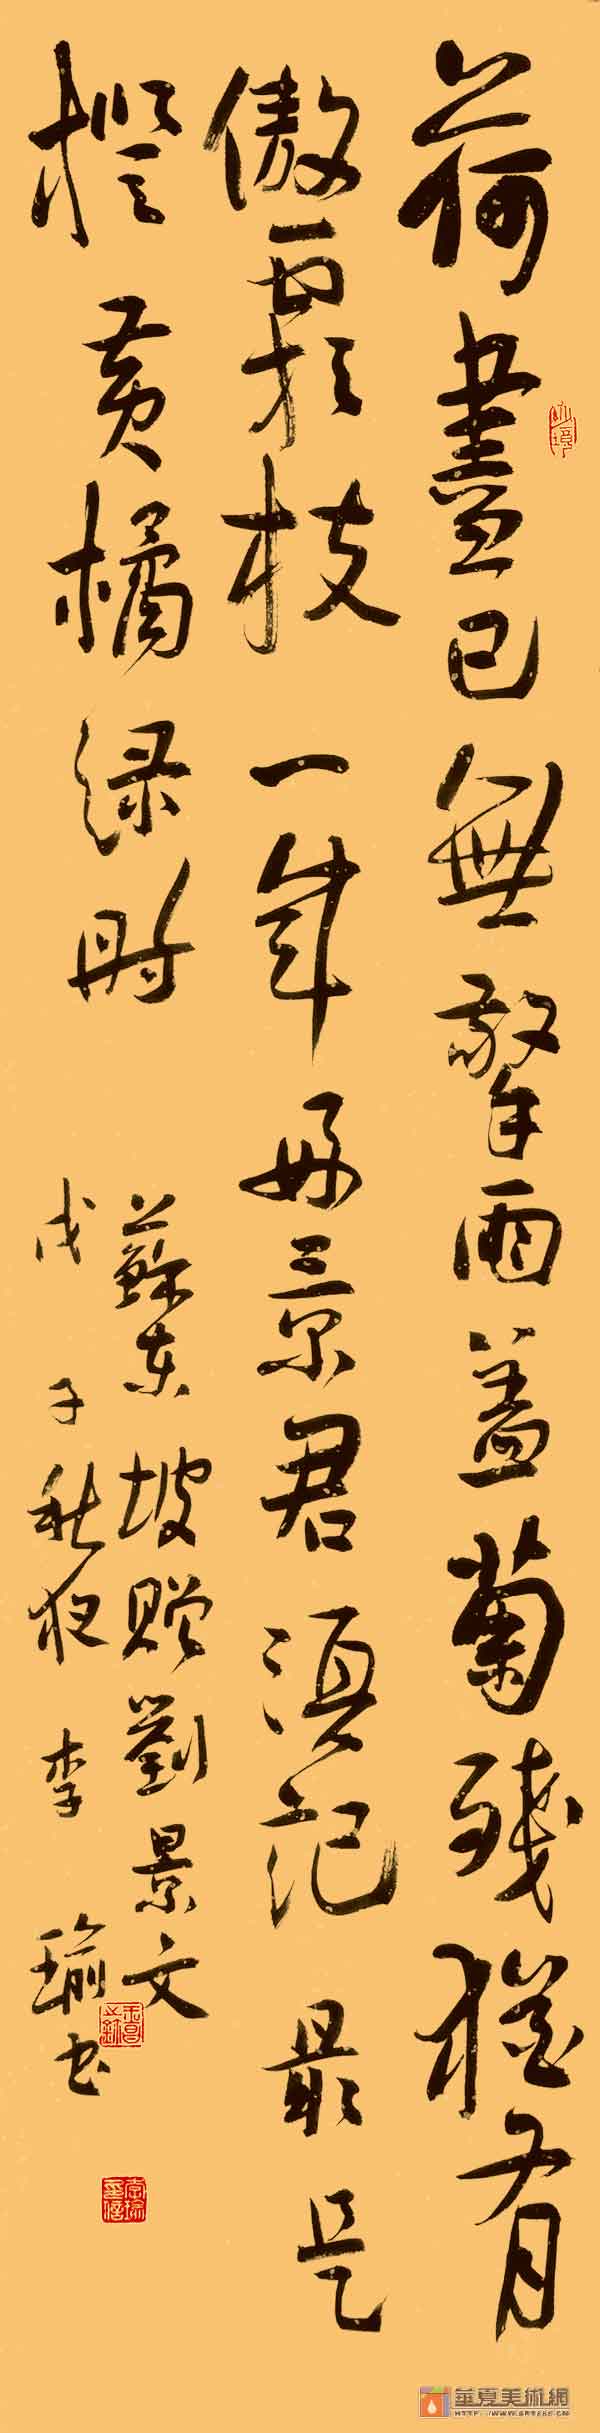 荷盡已無擎雨盖菊残猶有
傲霜枝一年好景君须記最是
橙黄橘绿时
蘇东坡赠劉景文
戊子秋夜李瑜书
華夏美術網